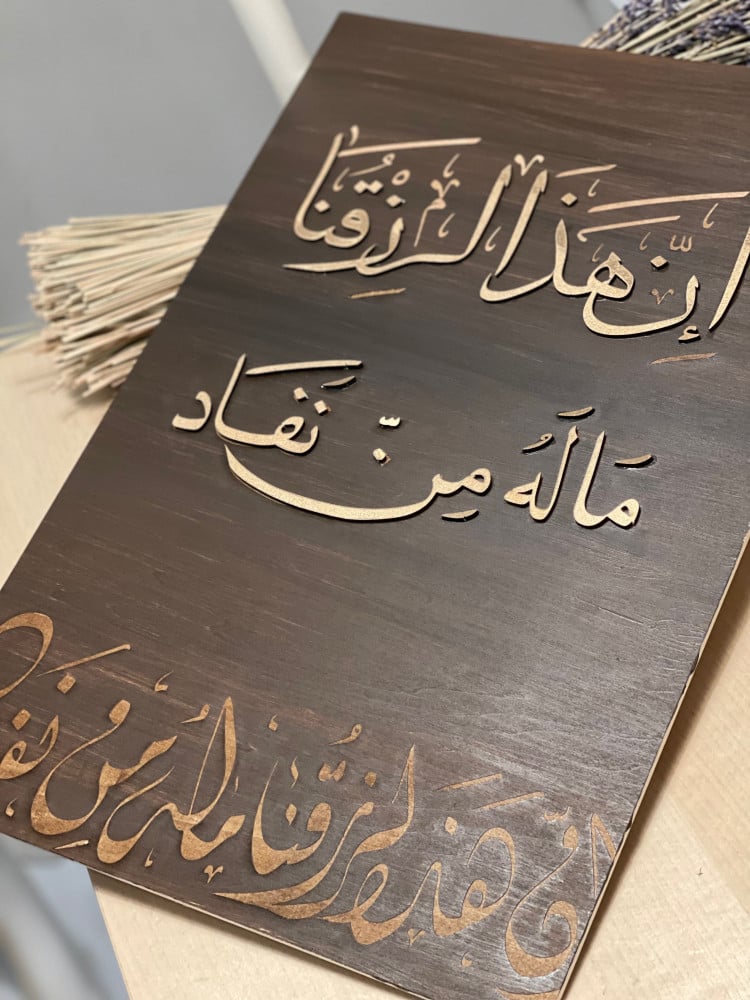 إنّ هَذَا لَرِزْقُنَا
مَا لَهُ مِنْ نَفَاد
إنّ هَذَا لَرِزْقُنَا مَا لَهُ مِن